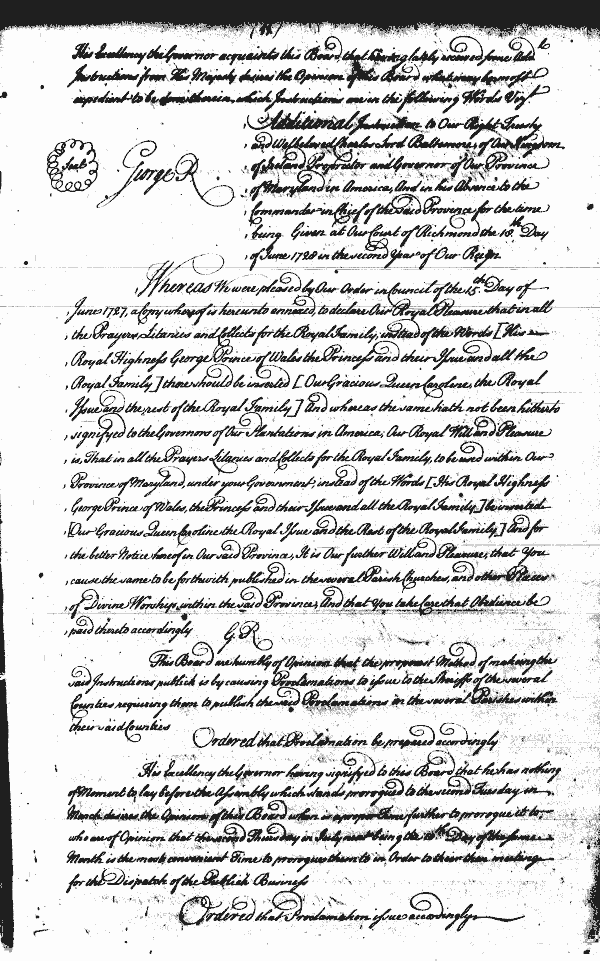 His Excellency the Governor acquaints this Board that having lately received some Add
Instructions from His Majesty desires the Opinion of this Board what may be most
expedient to be done therein, which Instructions are in the following Words Vizt
Additional Instruction to Our Right Trusty
and Welbeloved Charles Lord Baltemore, of Our Kingdom
of Ireland Proprietor and Governor of Our Province
Seal George R of Maryland in America, And in his Absence to the
Commander in Chief of the said Province for the time
being Given at Our Court of Richmond the 15th Day
of June 1728 in the second Year of Our Reign
Whereas We were pleased by Our Order in Council of the 15th Day of
June 1727, a Copy whereof is hereunto annexed, to declare Our Royal Pleasure, that in all
the Prayers, Litanies and Collects for the Royal Family, instead of the Words [His
Royal Highness George Prince of Wales the Princess and their Issue and all the
Royal Family] there should be inserted [Our Gracious Queen Caroline, the Royal
Issue and the rest of the Royal Family] And whereas the same hath not been hitherto
signifyed to the Governors of Our Plantations in America, Our Royal Will and Pleasure
is, That in all the Prayers Litanies and Collects for the Royal Family, to be used within Our
Province of Maryland, under your Government, instead of the Words [His Royal Highness
George Prince of Wales, the Princess and their Issue and all the Royal Family] be inserted
[Our Gracious Queen Caroline the Royal Issue and the Rest of the Royal Family,] And for
the better Notice hereof in Our said Province, It is Our further Will and Pleasure, that You
cause the same to be forthwith published in the several Parish Churches, and other Places
of Divine Worship, within the said Province, And that You take Care that Obedience be
paid thereto accordingly G. R
This Board are humbly of Opinion that the properest Method of making the
said Instructions publick is by causing Proclamations to issue to the Sheriffs of the several
Counties requiring them to publish the said Proclamations in the several Parishes within
their said Counties
Ordered that Proclamation be prepared accordingly
His Excellency the Governor having signifyed to this Board that he has nothing
of Moment to lay before the Assembly which stands prorogued to the second Tuesday in
March desires the Opinion of this Board when is a proper time further to prorogue it to,
who are of Opinion that the second Thursday in July next being the 10th Day of the same
Month is the most convenient Time to prorogue them to in Order to their then meeting
for the Dispatch of the Publick Business
Ordered that Proclamation issue accordingly